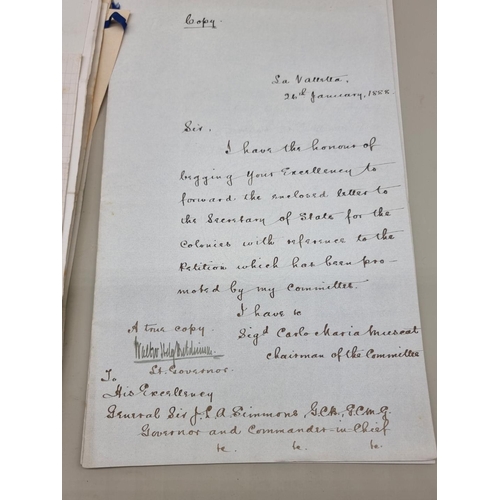 Copy.
La Valletta,
26th January, 1888
Sir.
I have the honour of
begging Your Excellency to
forward the enclosed letter to
the Secretary of State for the
Colonies with reference to the
Petition which has been pro-
moted by my Committee.
I have &c
A true copy.
Sigd Carlo Maria Muscat
Chairman of the Committee
Walter Hely Hutchinson
Lt. Governor.
To
His Excellency
General Sir J. L. A. Simmons, G.C.B., G.C.M.G.
Governor and Commander-in-Chief
&c. &c. &c.